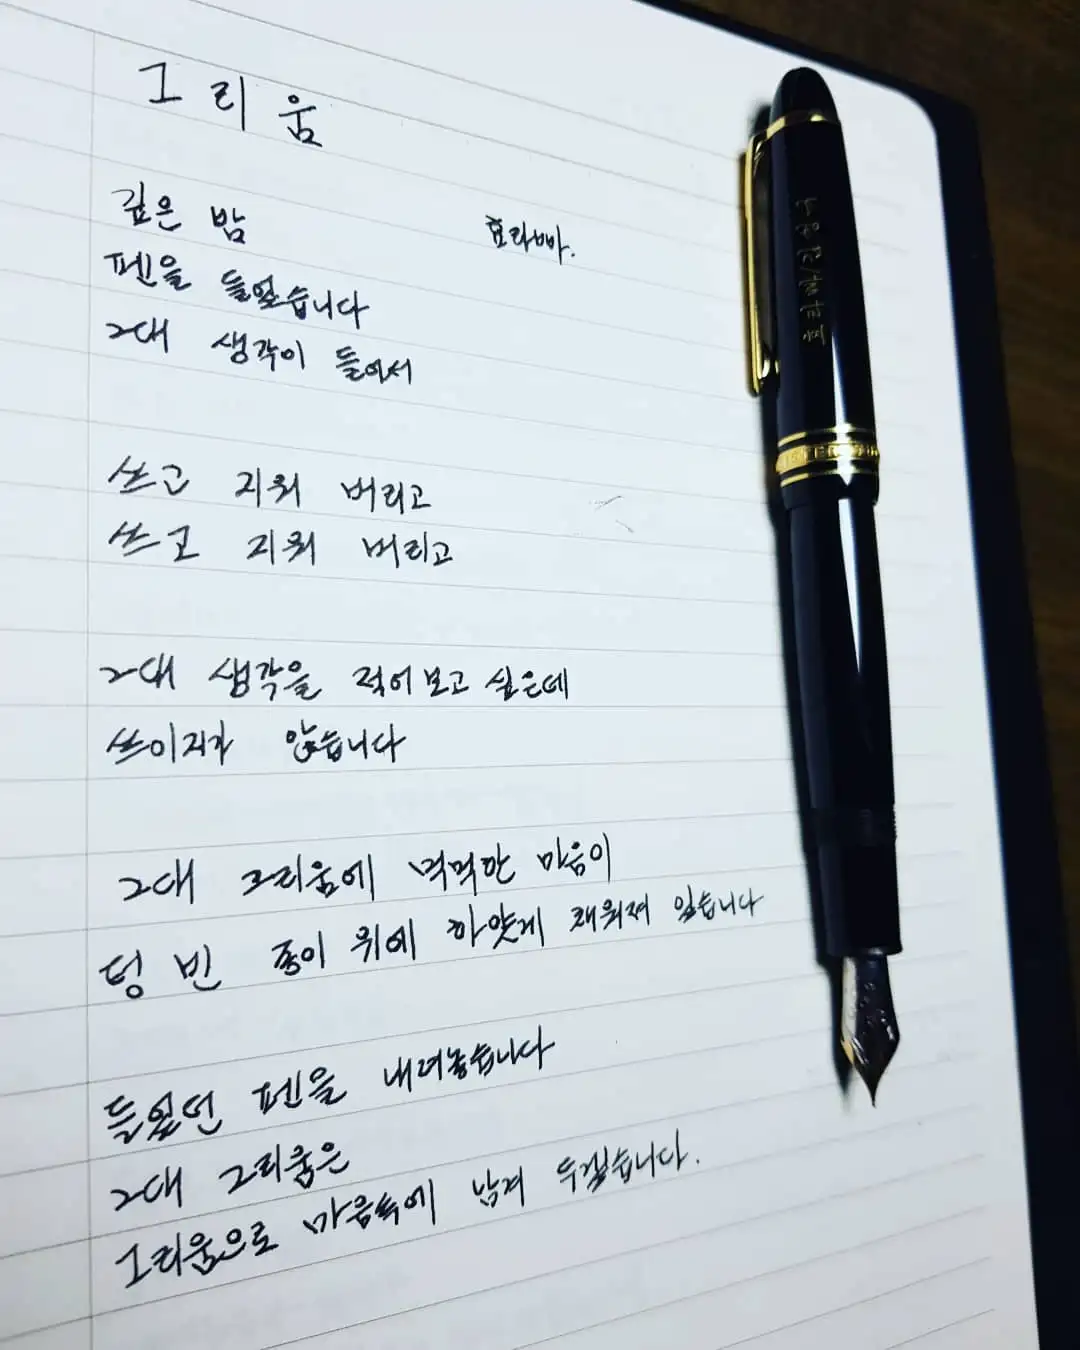 그리움
깊은 밤
효라빠.
펜을 들었습니다
그대 생각이 들어서
쓰고 지워 버리고
쓰고 지워 버리고
그대 생각을 적어보고 싶은데
쓰이지가 않습니다
그대 그리움에 먹먹한 마음이
텅 빈 종이 위에 하얗게 채워져 있습니다
들었던 펜을 내려놓습니다
그대 그리움은
그리움으로 마음속에 남겨 두겠습니다.